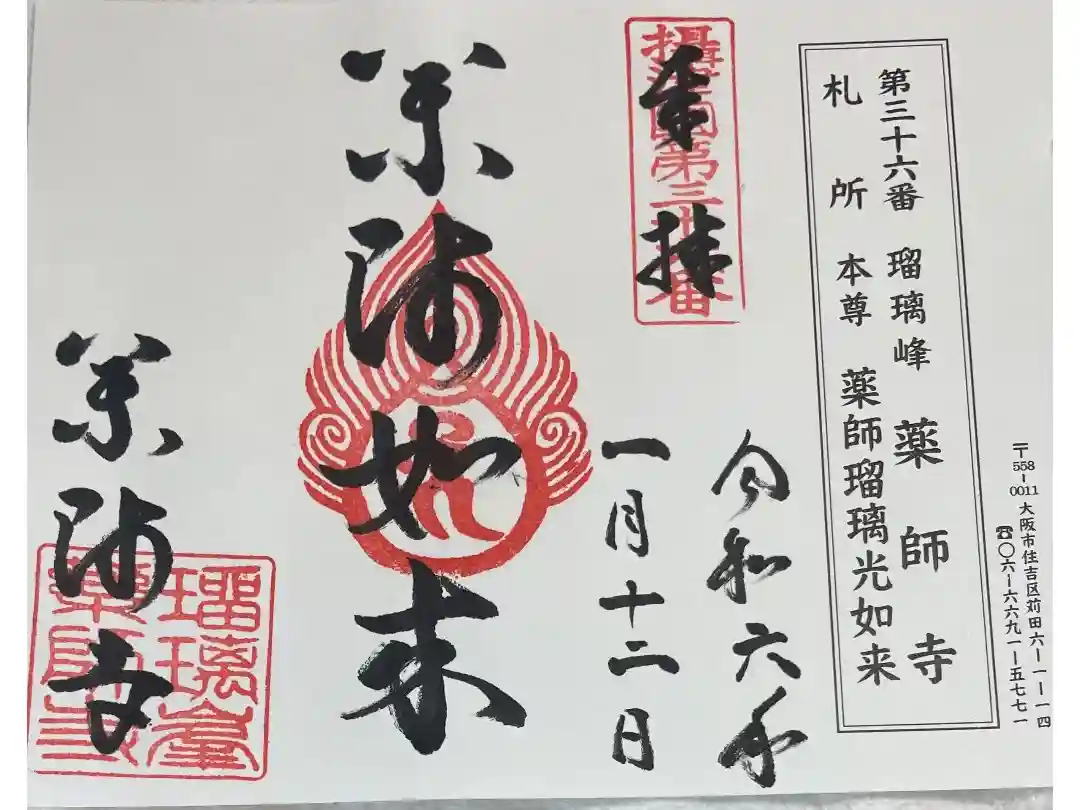 〒558-0011大阪市住吉区苅田六ー一ー一四
☎〇六ー六六九一ー五七七一
第三十六番 瑠璃峰 薬師寺
札所本尊 薬師瑠璃光如来
奉拝
令和六年
一月十二日
薬師如来
薬師寺
瑠璃峯
薬師寺